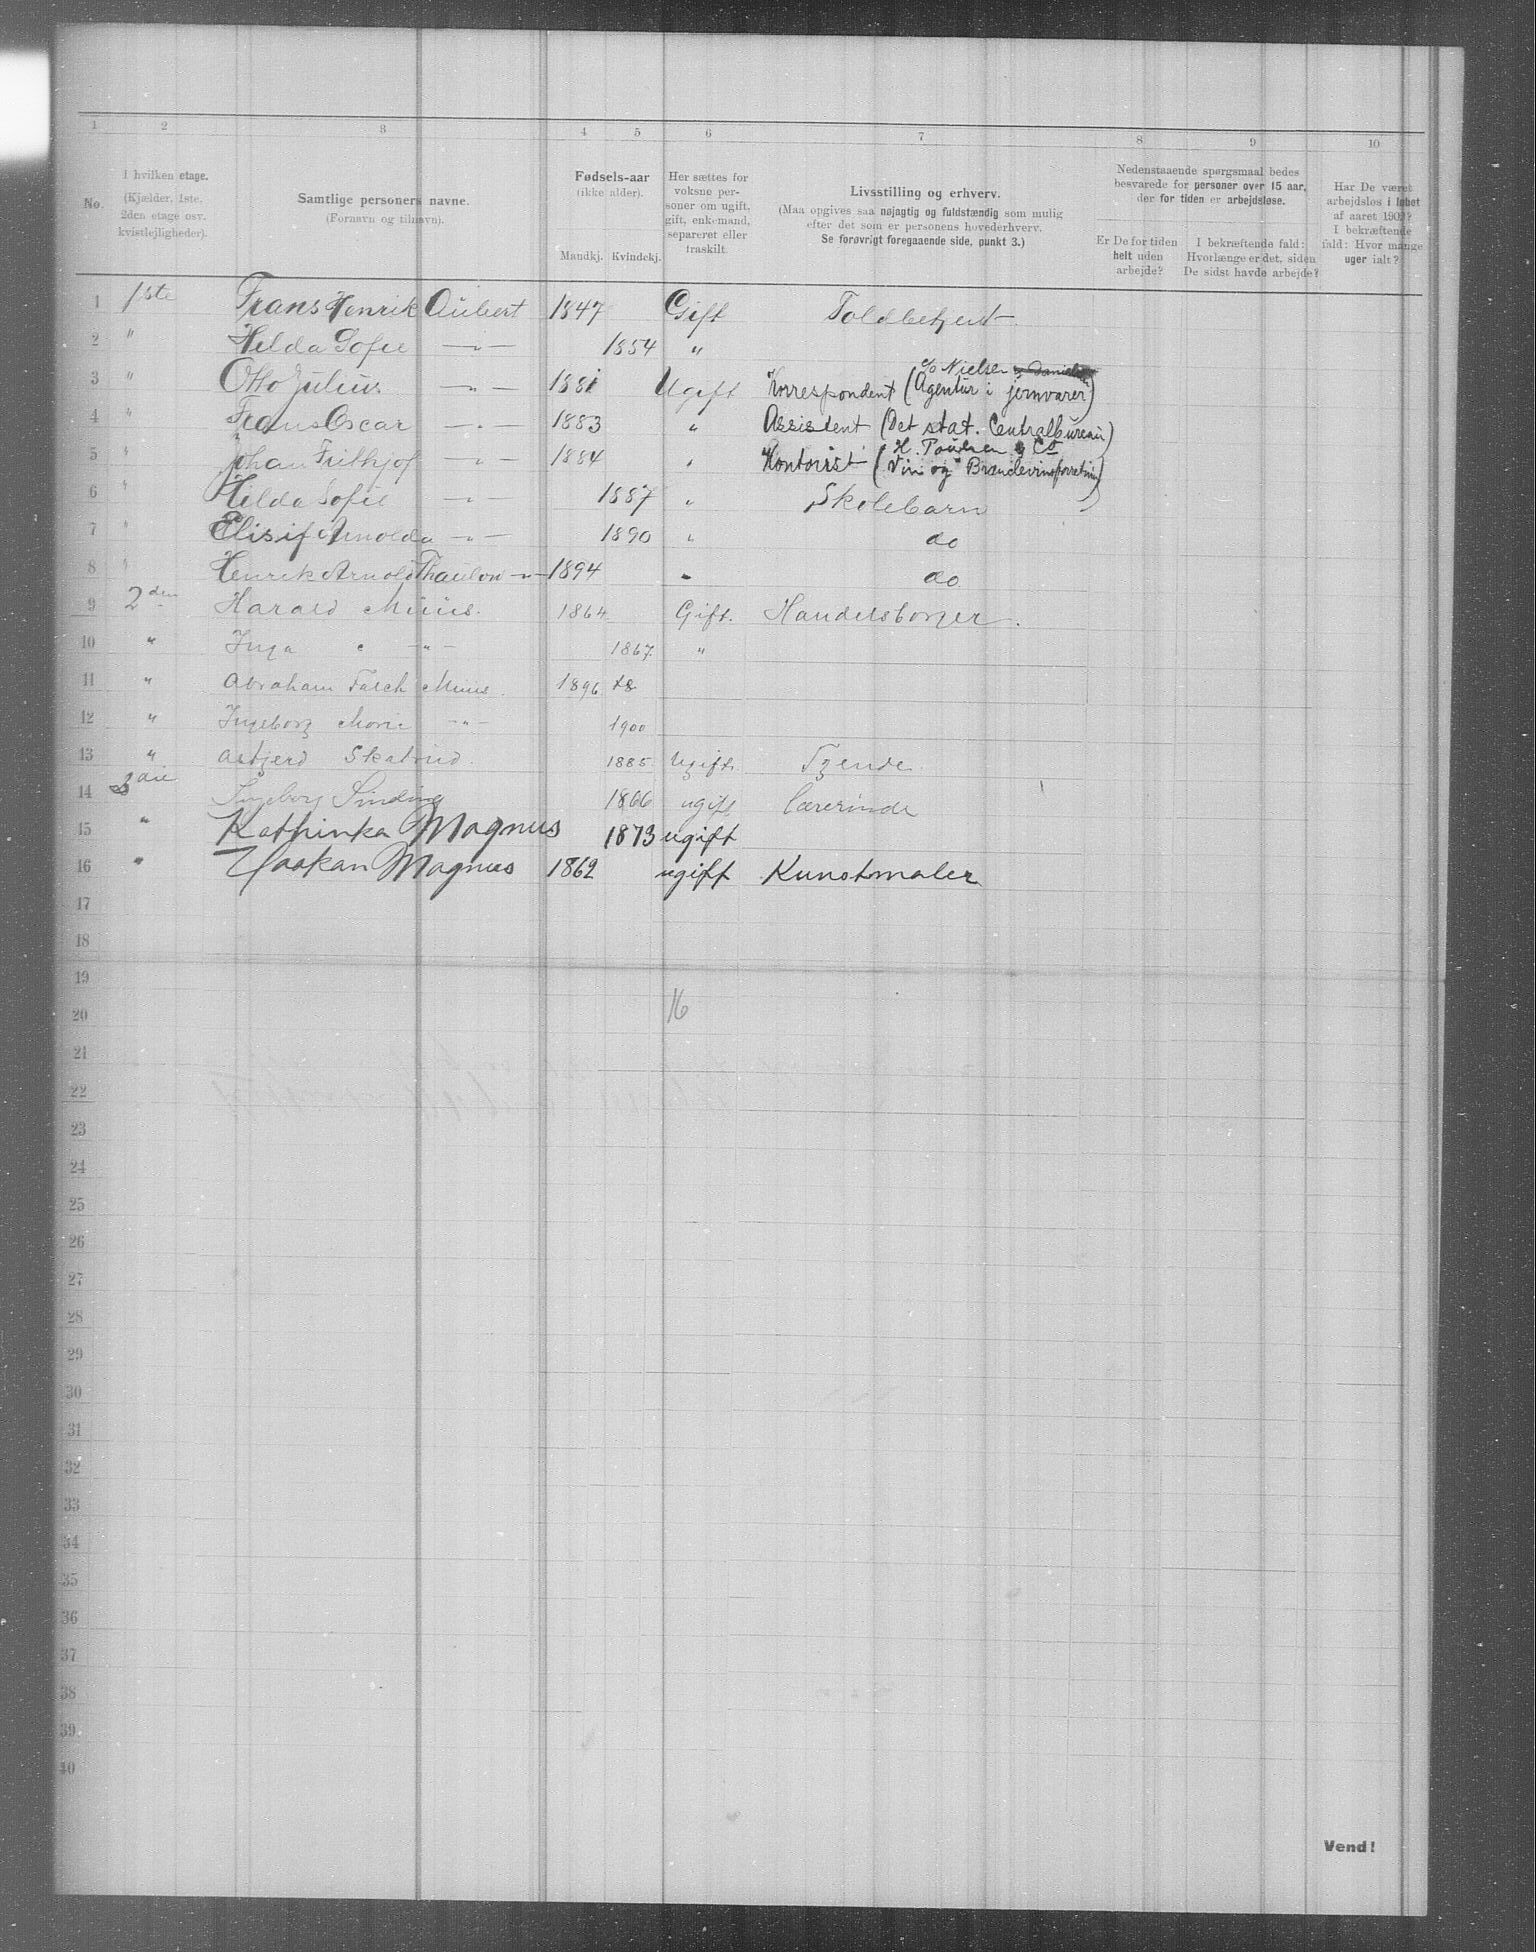 1 2 3 4 5 6 7 8 9 10
No.
I hvilken etage.
(Kjælder, 1ste,
2den etage osv.
kvistlejligheder).
Samtlige personers navne.
(Fornavn og tilnavn).
Fødsels-aar
(ikke alder).
Mandkj. Kvindekj.
Her sættes for
voksne per-
soner om ugift,
gift, enkemand,
separeret eller
fraskilt.
Livsstilling og erhverv.
(Maa opgives saa nøjagtig og fuldstændig som mulig
efter det som er personens hovederhverv.
Se forøvrigt foregaaende side, punkt 3.)
Nedenstaaende spørgsmaal bedes
besvarede for personer over 15 aar,
der for tiden er arbejdsløse.
Er De for tiden
helt uden
arbejde?
I bekræftende fald:
Hvorlænge er det, siden
De sidst havde arbejde?
Har De været
arbejdsløs i løbet
af aaret 190?
I bekræftende
fald: Hvor mange
uger ialt?
1 1ste Frans Henrik Aubert 1847 Gift Toldbetjent
2 " Hilda Sofie —"— 1854 "
% Nielsen
3 " Otto Julius —"— 1881 Ugift Korrespondent (Agentur i jernvarer)
4 " Frans Oscar —"— 1883 " Assistent (Det stat. Centralbureau)
H. Poulsen & Co
5 " Johan Frithjof —"— 1884 " Kontorist (Vin og Brændevinsforretning)
6 " Hilda Sofie —"— 1887 " Skolebarn
7 " Elisif Arnolda —"— 1890 " do
8 " Henrik Arnold Thaulow —"— 1894 " do
9 2den Harald Muus. 1864 Gift. Handelsborger.
10 " Inga " —"— 1867. "
11 " Abraham Falch Muus. 1896
12 " Ingeborg Marie —"— 1900
13 " Asbjerd Skatvid. 1885 Ugift Tjende
14 3die Ingeborg Sinding 1866 ugift Lærerinde
15 " Kathinka Magnus 1873 ugift
16 " Haakan Magnus 1862 ugift Kunstmaler
17
18
19
20 16
21
22
23
24
25
26
27
28
29
30
31
32
33
34
35
36
37
38
39
40
Vend!